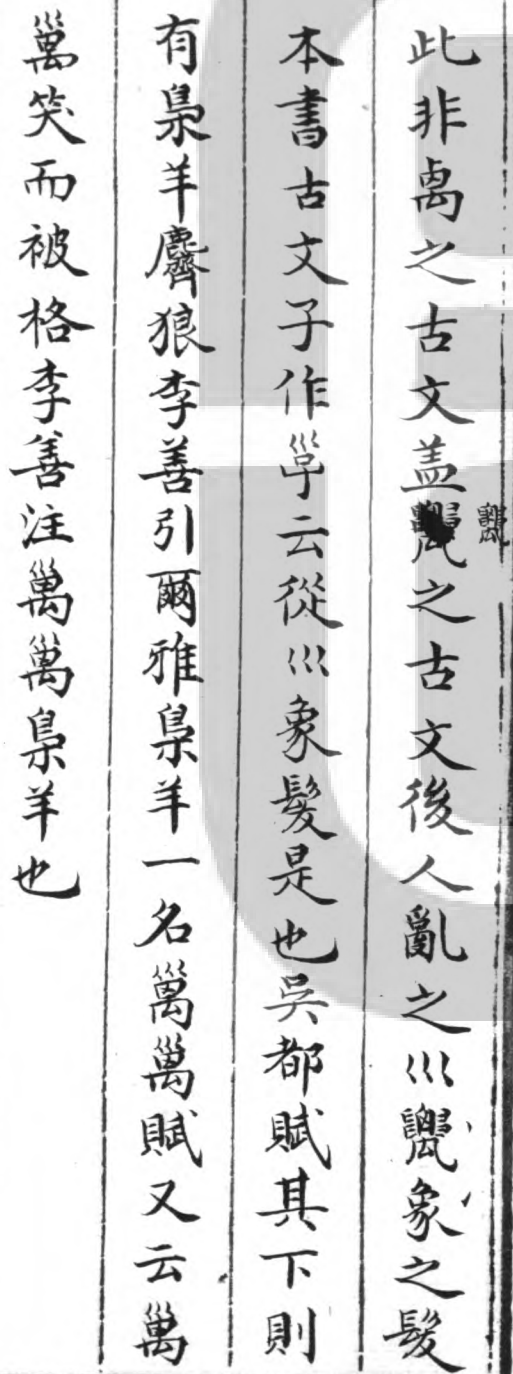 此非禼之古文盖𥜿之古文後人亂之巛𥜿象之髮
本書古文子作㜽云從巛象髮是也吳都賦其下則
有梟羊麡狼李善引爾雅梟羊一名賦又云
笑而被格李善注梟羊也